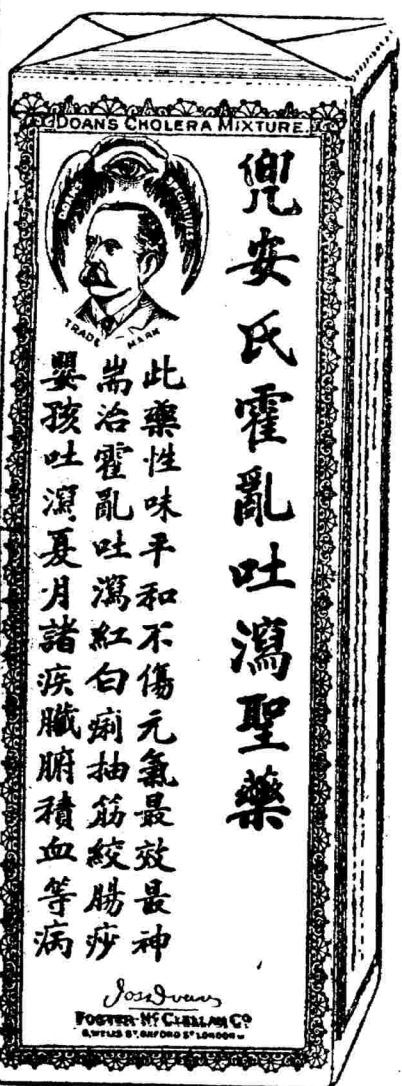 DOAN'S CHOLERA MIXTURE.
DOAN'S SPECIALTIES
TRADE MARK
兜安氏霍亂吐瀉聖藥
此藥性味平和不傷元氣最效最神
耑治霍亂吐瀉紅白痢抽筋絞腸痧
嬰孩吐瀉、夏月諸疾臟腑積血等病
FOSTER McCLELLAN Co
8, WELLS ST. OXFORD ST LONDON W